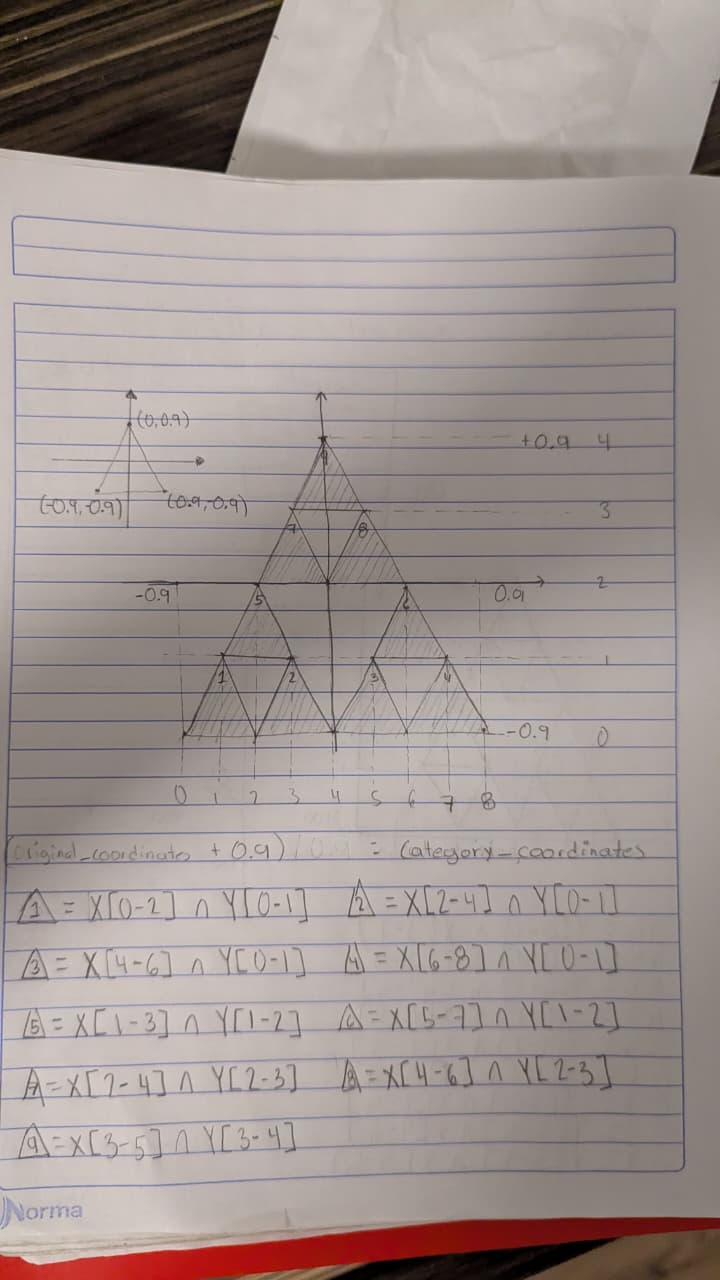 (0,0.9)
+0.9 4
(-0.9,-0.9) (0.9,-0.9)
9
3
7 8
2
-0.9 0.9
5 6
1
1 2 3 4
-0.9 0
0 1 2 3 4 5 6 7 8
(Original_coordinates + 0.9) = Category_coordinates
1 = X[0-2] ∩ Y[0-1] 2 = X[2-4] ∩ Y[0-1]
3 = X[4-6] ∩ Y[0-1] 4 = X[6-8] ∩ Y[0-1]
5 = X[1-3] ∩ Y[1-2] 6 = X[5-7] ∩ Y[1-2]
7 = X[2-4] ∩ Y[2-3] 8 = X[4-6] ∩ Y[2-3]
9 = X[3-5] ∩ Y[3-4]
Norma